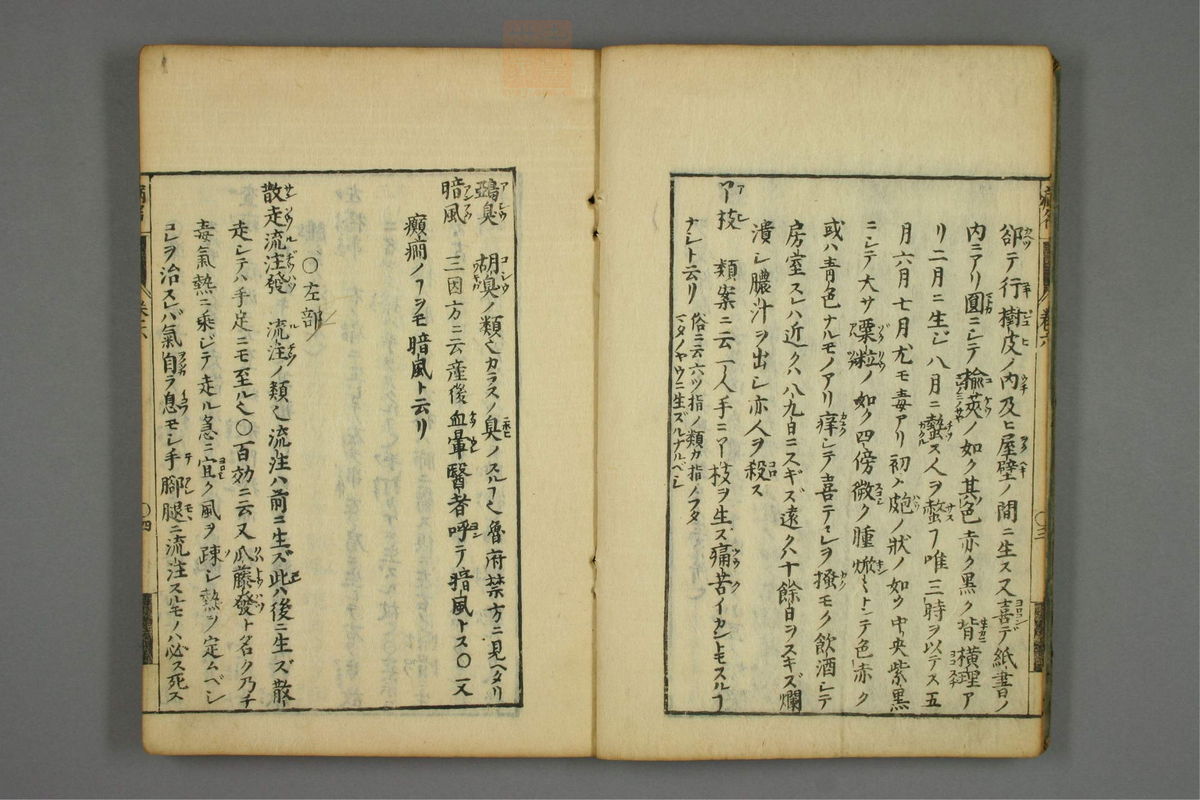 郤テ行樹皮ノ内及ヒ屋壁ノ間ニ生ス喜テ紙書ノ
内ニアリ圓ニシテ楡莢ノ如ク其色赤ク黒ク背横理ア
リ二月ニ生シ八月ニ蟄ス人ヲ螫ス唯三時ヲ以テス五
月六月七月尤モ毒アリ初ハ皰ノ狀ノ如ク中央紫黒
ニシテ大サ粟粒ノ如ク四傍微ク腫焮々トシテ色赤ク
或ハ青色ナルモノアリ痒シテ喜テ之ヲ搔モク飲酒シテ
房室スレハ近クハ八九日ニスギズ遠クハ十餘日ヲスギズ爛
潰シ膿汁ヲ出シ亦人ヲ殺ス
丫枝 類案ニ云一人手ニ丫枝ヲ生ス痛苦イカントモスルヿ
ナシト云リ 俗ニ云六ツ指ノ類カ指ノフタ
マタノヤウニ生ズルナルベシ
卷六
〇三
鵶臭 胡臭ノ類也カラスノ臭ノスルヿ也魯府禁方ニ見ヘタリ
暗風 三因方ニ云産後血暈醫者呼テ暗風トス〇又
癲癇ノヿヲモ暗風ト云リ
〇左部
散走流注發 流注ノ類也流注ハ前ニ生ズ此ハ後ニ生ズ散
走シテハ手足ニモ至ル也〇百効ニ云又瓜藤發ト名ク乃チ
毒氣熱ニ乘ジテ走ル急ニ宜ク風ヲ疎シ熱ヲ定ムベシ
コレヲ治スレバ氣自ラ息モシ手腳腿ニ流注スルモノハ必ス死ス
〇四